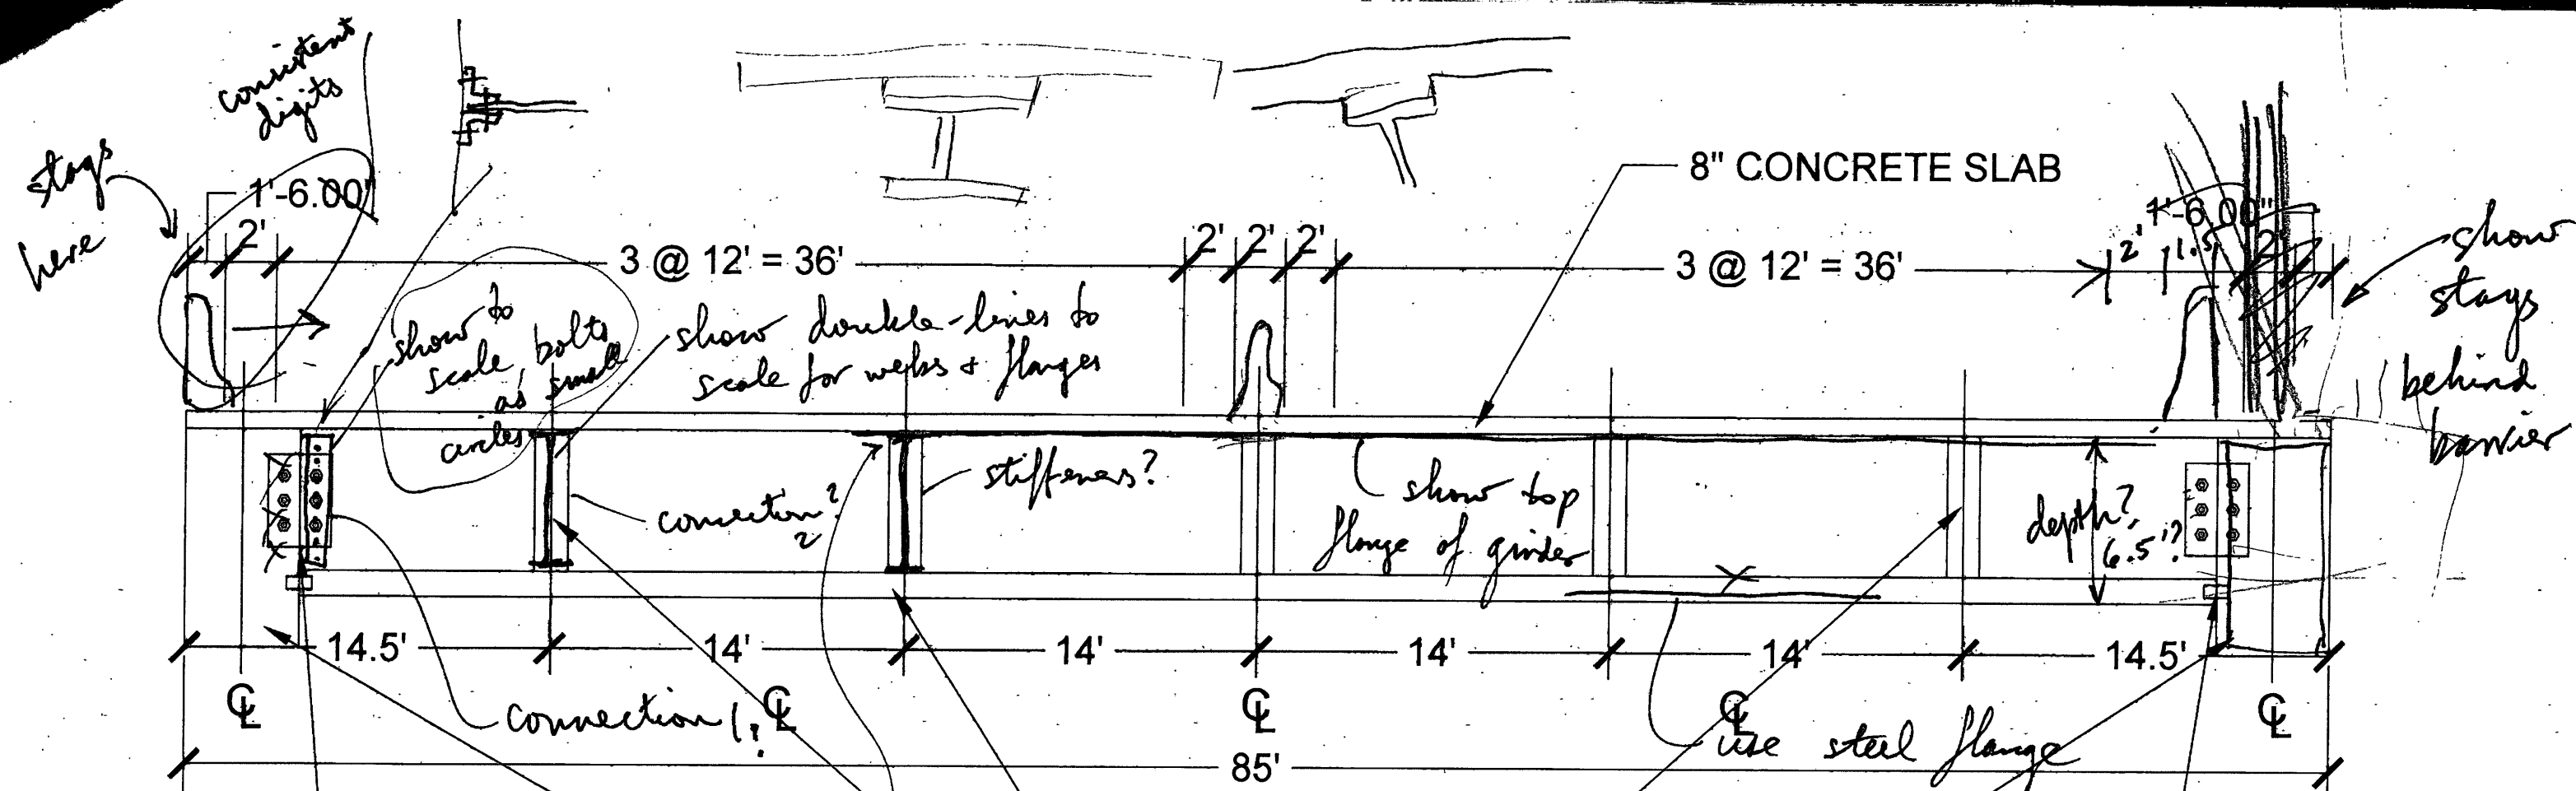 consistent
digits
stays
here
1'-6.00"
2'
3 @ 12' = 36'
2' 2' 2'
8" CONCRETE SLAB
3 @ 12' = 36'
1'-6.00"
2' 1.5 2'
show
stays
behind
barrier
show to
scale, bolts
as small
circles
show double-lines to
scale for webs + flanges
connection?
2
stiffeners?
show top
flange of girder
depth?
6.5'?
14.5' 14' 14' 14' 14' 14.5'
℄ ℄ ℄ ℄ ℄
connection 1?
use steel flange
85'